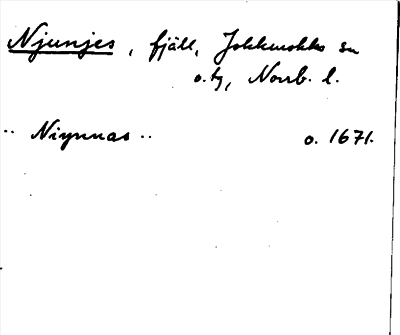 Njunjes, fjäll, Jokkmokks sn
o. tg, Norrb. l.
.. Niynnas .. o. 1671.